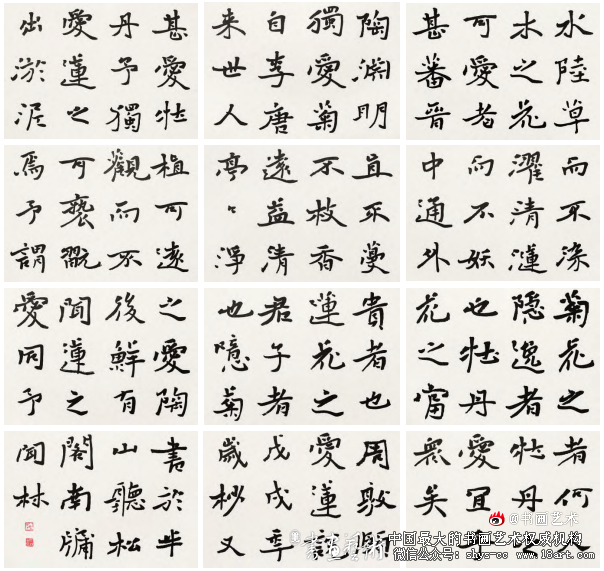 水陸草
木之花
可愛者
甚蕃晉
陶淵明
獨愛菊
自李唐
来世人
甚愛牡
丹予獨
愛蓮之
出淤泥
而不染
濯清漣
而不妖
中通外
直不蔓
不枝香
遠益清
亭〻淨
植可遠
觀而不
可褻翫
焉予謂
菊花之
隐逸者
也牡丹
花之富
貴者也
蓮花之
君子者
也噫菊
之愛陶
後鮮有
聞蓮之
愛同予
者何人
牡丹之
愛宜乎
衆矣
周敦頤
愛蓮説
戊戌年
歲杪又
書於半
山聽松
閣南牖
聞林
@书画艺术
中国最大的书画艺术权威机构
微信公众号: shys-cc www.18art.com